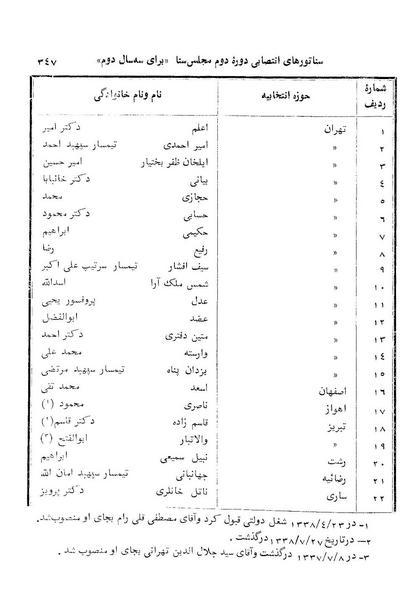 سناتورهای انتصابی دورهٔ دوم مجلس‌سنا «برای سه‌سال دوم» ۳۴۷
شمارهٔ ردیف حوزه انتخابیه نام ونام خانوادگی
۱ تهران اعلم دکتر امیر
۲ » امیر احمدی تیمسار سپهبد احمد
۳ » ایلخان ظفر بختیار امیر حسین
۴ » بیانی دکتر خانبابا
۵ » حجازی محمد
۶ » حسابی دکتر محمود
۷ » حکیمی ابراهیم
۸ » رفیع رضا
۹ » سیف افشار تیمسار سرتیپ علی اکبر
۱۰ » شمس ملک آرا اسدالله
۱۱ » عدل پروفسور یحیی
۱۲ » عضد ابوالفضل
۱۳ » متین دفتری دکتر احمد
۱۴ » وارسته محمد علی
۱۵ » یزدان پناه تیمسار سپهبد مرتضی
۱۶ اصفهان اسعد محمد تقی
۱۷ اهواز ناصری محمود (۱)
۱۸ تبریز قاسم زاده دکتر قاسم (۲)
۱۹ » والاتبار ابوالفتح (۳)
۲۰ رشت نبیل سمیعی ابراهیم
۲۱ رضائیه جهانبانی تیمسار سپهبد امان الله
۲۲ ساری ناتل خانلری دکتر پرویز
۱- در ۱۳۳۸/۴/۲۳ شغل دولتی قبول کرد وآقای مصطفی قلی رام بجای او منصوب‌شد.
۲- درتاریخ ۱۳۳۸/۷/۲۷ درگذشت.
۳- در ۱۳۳۷/۷/۸ درگذشت وآقای سید جلال الدین تهرانی بجای او منصوب شد.